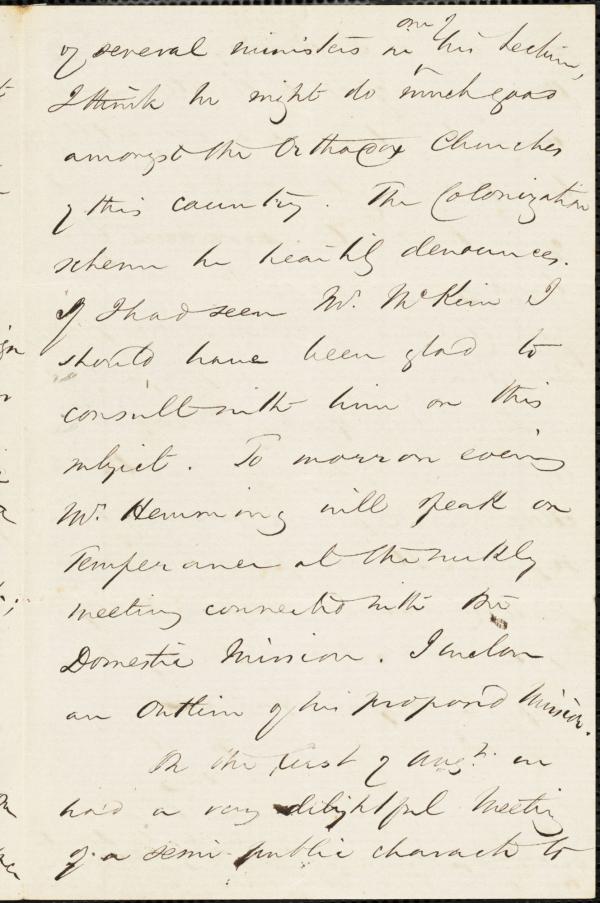 one of
of several ministers on his Lecture,
I think he might do much good
amongst the Orthodox Churches
of this country. The Colonization
scheme he heartily denounces.
If I had seen Mr. McKim I
should have been glad to
consult with him on this
subject. To morrow evening
Mr. Hemming will speak on
Temperance at the weekly
meeting connected with the
Domestic Mission. I enclose
an Outline of his proposed Mission.
On the first of Augt. we
had a very delightful Meeting
of a semi-public character to